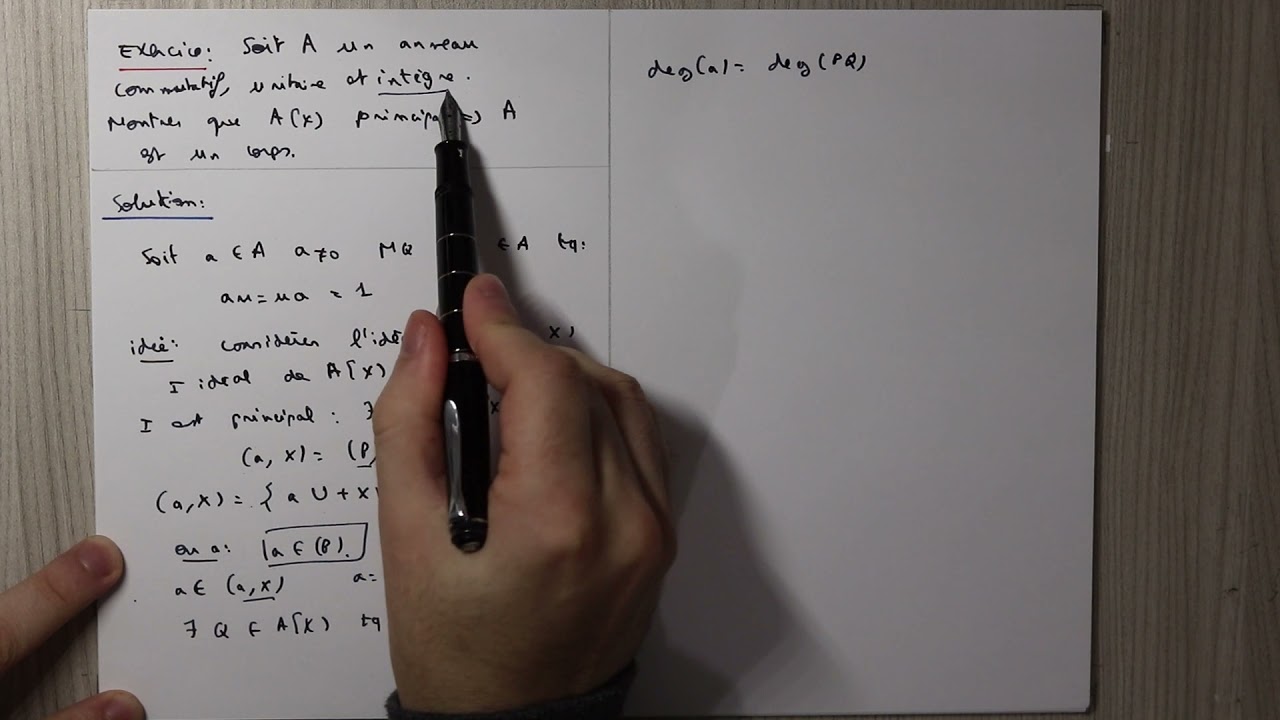 Exercice: Soit A un anneau
commutatif, unitaire et intègre.
Montrer que A[X] principal => A
est un corps.
Solution:
Soit a ∈ A a≠0 MQ ∈ A tq:
au = ua = 1
idée: considérer l'idé X)
I idéal de A[X]
I est principal: ∃ X
(a, X) = (P)
(a, X) = { a U + X
on a: a ∈ (P).
a ∈ (a, X) a =
∃ Q ∈ A[X] tq
deg(a) = deg(PQ)